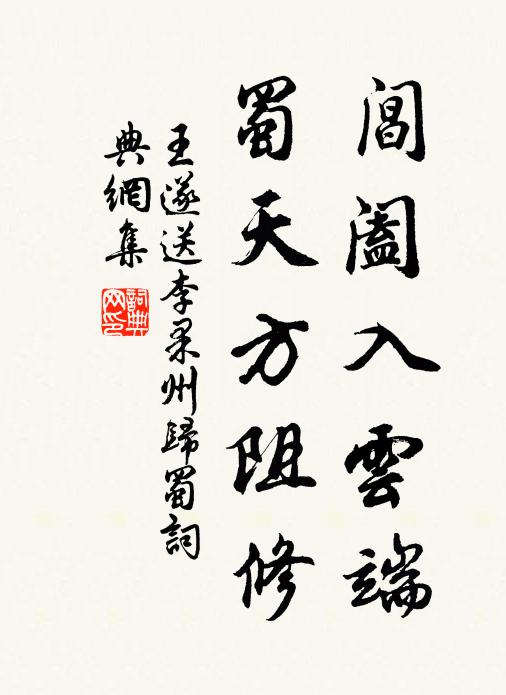 閶闔入雲端
蜀天方阻修
王遂送李果州歸蜀詞
典網集
詞典網印